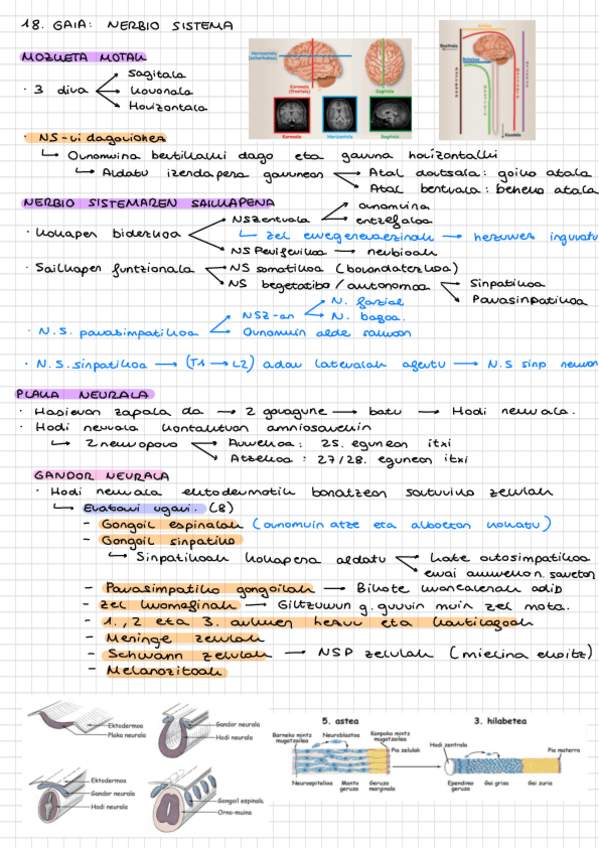 18. GAIA: NERBIO SISTEMA
MOZKETA MOTAK
· 3 dira
Sagitala
Koronala
Horizontala
Horizontala
Koronala
(frontala)
Sagitala
Koronala
Horizontala
Sagitala
· NS-ri dagokionez
↳ Oronmuina bertikalki dago eta garuna horizontalki
↳ Aldatu izendapena garunean
Atal dortsala: goiko atala
Atal bentrala: beheko atala
NERBIO SISTEMAREN SAILKAPENA
· Kokapen bidezkoa
NSZentrala
oronmuina
entzefaloa
↳ zel erregeneraezinak → hezurrez inguratu
NS Periferikoa → nerbioak
· Sailkapen funtzionala
NS somatikoa (borondatezkoa)
NS begetatibo / autonomoa
Sinpatikoa
Parasinpatikoa
· N.S. parasimpatikoa
NSZ-an
N. fazial
N. bagoa.
Oronmuin alde sakroan
· N.S. sinpatikoa → (T1 → L2) adar lateralak agertu → N.S sinp neuron
PLAKA NEURALA
· Hasieran zapala da → 2 goragune → batu → Hodi neurala.
· Hodi neurala kontaktuan amniosarekin
↳ 2 neuroporo
Aurrekoa: 25. egunean itxi
Atzekoa: 27/28. egunean itxi
GANDOR NEURALA
· Hodi neurala ektodermotik banatzean sorturiko zelulak
↳ Eratorri ugari. (8)
- Gongoil espinalak (oronmuin atze eta alboetan kokatu)
- Gongoil sinpatiko
↳ Sinpatikoak kokapena aldatu
kate ortosimpatikoa
- Parasimpatiko gongoilak → Bihote kranealenak adib
- Zel kromafinak → Giltzurrun g. guruin muin zel mota.
- 1., 2 eta 3. arkuen hezur eta kartilagoak
- Meninge zelulak
- Schwann zelulak → NSP zelulak (mielina ekoitz)
- Melanozitoak
Ektodermoa
Plaka neurala
Gandor neurala
Hodi neurala
Ektodermoa
Gandor neurala
Hodi neurala
Gongoil espinala
Orno-muina
5. astea
Barneko mintz mugatzailea
Neuroblastoa
Kanpoko mintz mugatzailea
Pia zelulak
Neuroepitelioa
Manto geruza
Geruza marginala
3. hilabetea
Hodi zentrala
Pia materra
Ependimo geruza
Gai grisa
Gai zuria